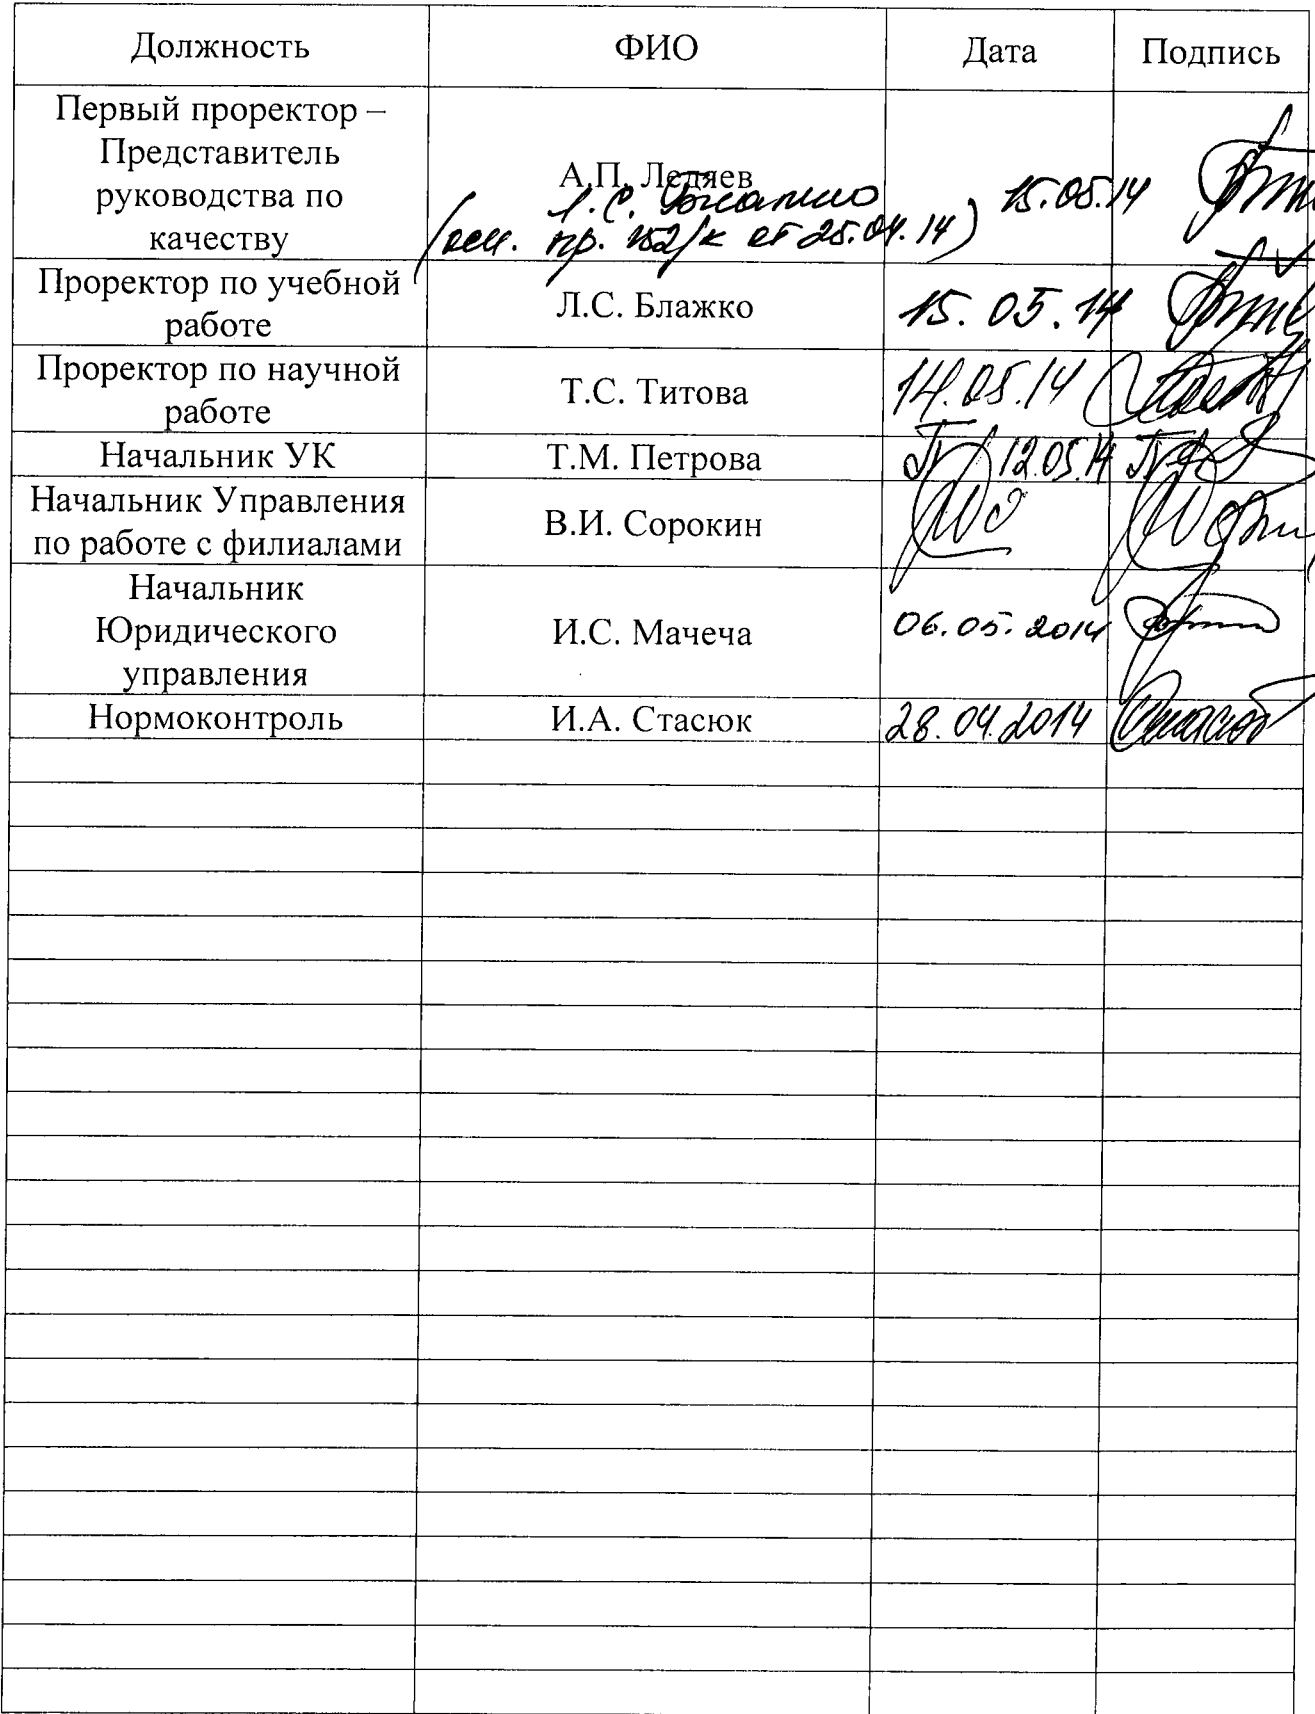 Должность ФИО Дата Подпись
Первый проректор –
Представитель
руководства по
качеству
А.П. Ледяев
Л.С. Блажко 15.05.14
пр. 152/к от 25.04.14)
Проректор по учебной
работе
Л.С. Блажко 15.05.14
Проректор по научной
работе
Т.С. Титова 14.05.14
Начальник УК Т.М. Петрова 12.05.14
Начальник Управления
по работе с филиалами
В.И. Сорокин
Начальник
Юридического
управления
И.С. Мачеча 06.05.2014
Нормоконтроль И.А. Стасюк 28.04.2014